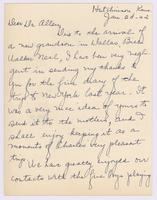 Hutchinson Kans
Jan. 22-22
Dear Dr. Allen,
Due to the arrival of
a new grandson in Dallas,
Neal, I have been very negli-
gent in sending my thanks to
you for the fine diary of the
trip to New York last year. It
was a very nice idea of yours to
send it to the mothers, and I
shall enjoy keeping it as a
memento of Charles very pleasant
trip.
We have greatly enjoyed our
contacts with the fine boys playing